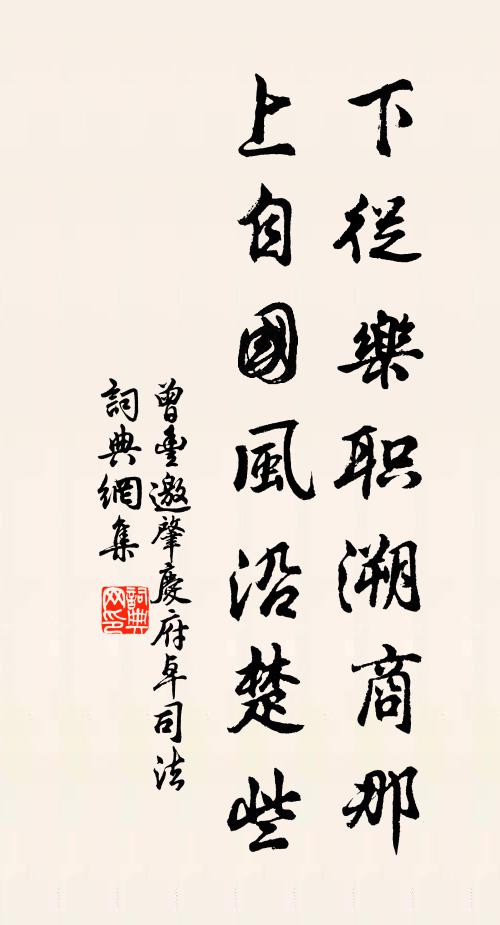 下從樂职溯商那
上自國風沿楚些
曾豐邀肇慶府卓司法
詞典網集
詞典网印